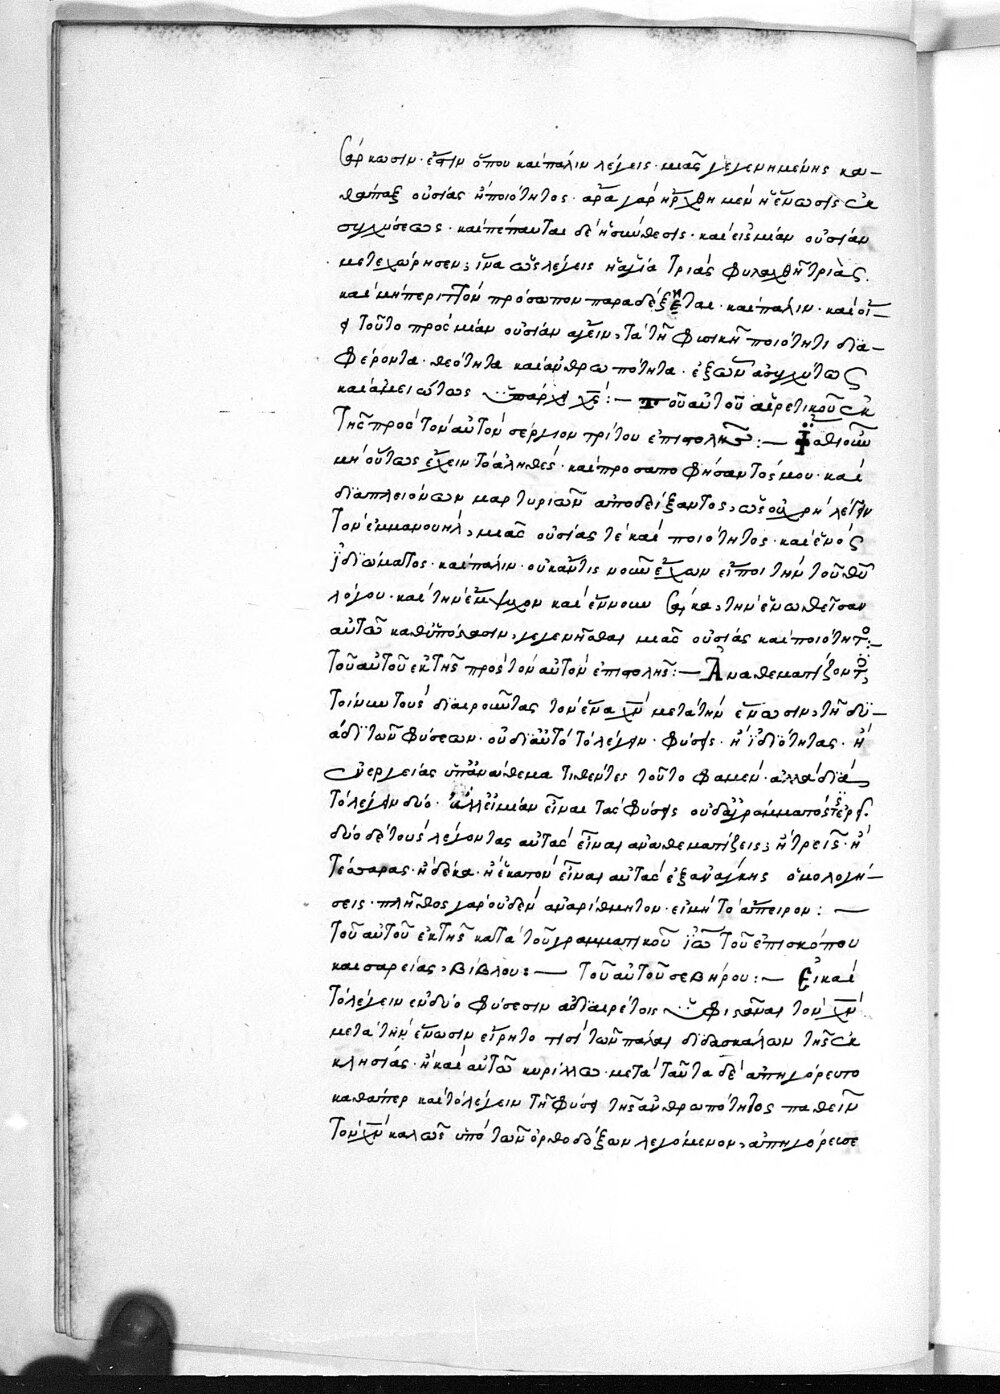 σάρκωσιν· ἔστιν ὅπου καὶ πάλιν λέγεις· μιᾶς γεγενημένης κα-
θάπαξ οὐσίας ἢ ποιότητος· ἆρα γὰρ ἤρχθη μὲν ἡ ἕνωσις ἐκ
συγχύσεως· καὶ πέπαυται δὲ ἡ σύνθεσις· καὶ εἰς μίαν οὐσίαν
μετεχώρησεν; ἵνα ὡς λέγεις ἡ ἁγία τριὰς φυλαχθῇ τριάς.
καὶ μὴ περιττὸν πρόσωπον παραδέξηται· καὶ πάλιν· καὶ οἵ-
τοῦτο πρὸς μίαν οὐσίαν ἄγειν, τὰ τῇ φυσικῇ ποιότητι δια-
φέροντα· θεότητα καὶ ἀνθρωπότητα· ἐξ ὧν ἀσυγχύτως
καὶ ἀμειώτως ὑπάρχει χς: — τοῦ αὐτοῦ αἱρετικοῦ ἐκ
τῆς πρὸς τὸν αὐτὸν σέργιον τρίτου ἐπιστολῆς: —
μὴ οὕτως ἔχειν τὸ ἀληθές· καὶ προσαποφήσαντός μου· καὶ
διὰ πλειόνων μαρτυριῶν ἀποδείξαντος, ὡς οὐ χρὴ λέγειν
τὸν ἐμμανουὴλ, μιᾶς οὐσίας τὲ καὶ ποιότητος· καὶ ἑνὸς
ἰδιώματος· καὶ πάλιν· οὐκ ἄν τις νοῦν ἔχων εἴποι τὴν τοῦ θυ
λόγου· καὶ τὴν ἔμψυχον καὶ ἔννουν σάρκα, τὴν ἑνωθεῖσαν
αὐτῶ καθ' ὑπόστασιν, γεγενῆσθαι μιᾶς οὐσίας καὶ ποιότητος:-
τοῦ αὐτοῦ ἐκ τῆς πρὸς τὸν αὐτὸν ἐπιστολῆς: — Ἀναθεματίζοντες
τοίνυν τοὺς διαιροῦντας τὸν ἕνα χν μετὰ τὴν ἕνωσιν, τῇ δυ-
άδι τῶν φύσεων· οὐ διὰ αὐτὸ τὸ λέγειν· φύσεις· ἢ ἰδιότητας· ἢ
ἐνεργείας ὑπ' ἀνάθεμα τιθέντες τοῦτο φαμέν· ἀλλὰ διὰ
τὸ λέγειν δύο·
δύο δὲ τοὺς λέγοντας αὐτὰς εἶναι ἀναθεματίζεις; ἢ τρεῖς· ἢ
τέσσαρας· ἢ δέκα· ἢ ἑκατὸν εἶναι αὐτὰς ἐξ ἀνάγκης ὁμολογή-
σεις· πλῆθος γὰρ οὐδὲν ἀναρίθμητον· εἰ μὴ τὸ ἄπειρον: —
τοῦ αὐτοῦ ἐκ τῆς κατὰ τοῦ γραμματικοῦ ἰω τοῦ ἐπισκόπου
καισαρείας, βίβλους — τοῦ αὐτοῦ σεβήρου: — Εἰ καὶ
τὸ λέγειν ἐν δύο φύσεσιν ἀδιαιρέτοις ὑφιστᾶναι τὸν χν
μετὰ τὴν ἕνωσιν εἴρητο τισὶ τῶν πάλαι διδασκάλων τῆς ἐκ
κλησίας· ἢ καὶ αὐτῶ κυρίλλω· μετὰ ταῦτα δὲ ἀπηγόρευτο
καθάπερ καὶ τὸ λέγειν τῇ φύσει τῆς ἀνθρωπότητος παθεῖν
τὸν χν καλῶς ὑπὸ τῶν ὀρθοδόξων λεγόμενον, ἀπηγόρευσε